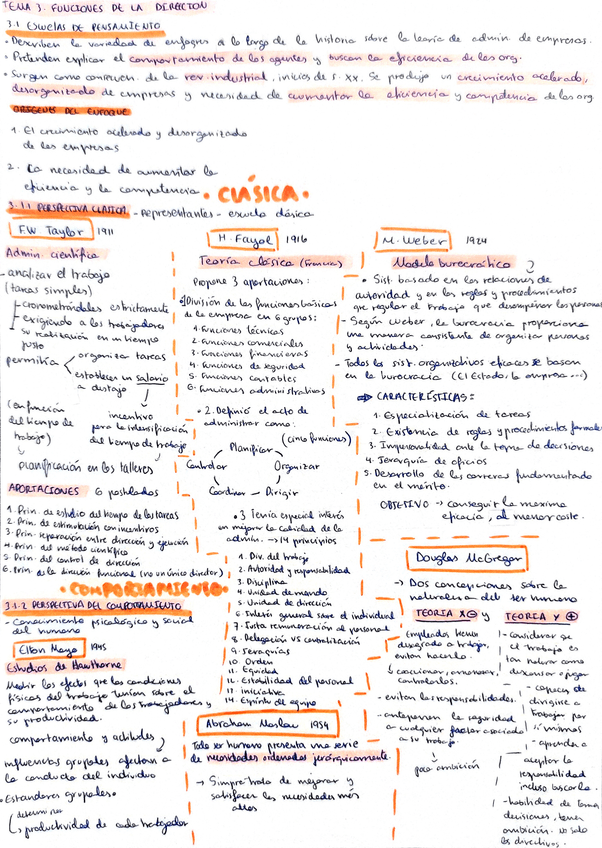 TEMA 3. FUNCIONES DE LA DIRECCION
3.1 ESCUELAS DE PENSAMIENTO
• Describen la variedad de enfoques a lo largo de la historia sobre la teoría de admin. de empresas.
• Pretenden explicar el comportamiento de los agentes y buscan la eficiencia de las org.
• Surgen como consecuen. de la rev. industrial, inicios de s. XX. Se produjo un crecimiento acelerado,
desorganizado de empresas y necesidad de aumentar la eficiencia y competencia de las org
ORÍGENES DEL ENFOQUE
1. El crecimiento acelerado y desorganizado
de las empresas
2. La necesidad de aumentar la
eficiencia y la competencia
• CLÁSICA •
3.1.1 PERSPECTIVA CLASICA - Representantes - escuela clásica
F.W Taylor 1911
Admin. científica
- analizar el trabajo
(tareas simples)
cronometrándoles estrictamente
exigiendo a los trabajadores
su realización en un tiempo
justo
permitía
organizar tareas
establecer un salario
a destajo
(en función
del tiempo de
trabajo)
incentivo
para la intensificación
del tiempo de trabajo
planificación en los talleres
APORTACIONES 6 postulados
1. Prin. de estudio del tiempo de las tareas
2. Prin. de estimulación con incentivos
3. Prin. separación entre dirección y ejecución
4. Prin. del método científico
5. Prin. del control de dirección
6. Prin. de la dirección funcional (no un único director)
H. Fayol 1916
Teoría clásica (Francia)
Propone 3 aportaciones:
• 1 División de las funciones básicas
de la empresa en 6 grupos:
1. Funciones técnicas
2. Funciones comerciales
3. Funciones financieras
4. Funciones de seguridad
5. Funciones contables
6. Funciones administrativas
• 2. Definió el acto de
administrar como:
(cinco funciones)
Planificar
Controlar Organizar
Coordinar - Dirigir
• 3 Tenía especial interés
en mejorar la calidad de la
admin. → 14 principios
1. Div. del trabajo
2. Autoridad y responsabilidad
3. Disciplina
4. Unidad de mando
5. Unidad de dirección
6. Interés general sobre el individual
7. Justa remuneración al personal
8. Delegación VS centralización
9. Jerarquías
10 Orden
11. Equidad
12. Estabilidad del personal
13. iniciativa
14. Espíritu de equipo
M. Weber 1924
Modelo burocrático
• Sist. basado en las relaciones de
autoridad y en las reglas y procedimientos
que regulan el trabajo que desempeñan las personas
- Según Weber, la burocracia proporciona
una manera consistente de organizar personas
y actividades.
- Todos los sist. organizativos eficaces se basan
en la burocracia (El Estado, la empresa ...)
CARACTERÍSTICAS:
1. Especialización de tareas
2. Existencia de reglas y procedimientos formales
3. Impersonalidad ante la toma de decisiones
4. Jerarquía de oficios
5. Desarrollo de las carreras fundamentado
en el mérito.
OBJETIVO → conseguir la máxima
eficacia, al menor coste.
• COMPORTAMIENTO •
3.1.2 PERSPECTIVA DEL COMPORTAMIENTO
- Conocimiento psicológico y social
del humano
Elton Mayo 1945
Estudios de Hawthorne
Medir los efectos que las condiciones
físicas del trabajo tenían sobre el
comportamiento de los trabajadores y
su productividad.
comportamiento y actitudes
influencias grupales afectan a
la conducta del individuo
• Estandares grupales
determina
productividad de cada trabajador
Abraham Maslow 1954
Todo ser humano presenta una serie
de necesidades ordenadas jerárquicamente.
→ Siempre trata de mejorar y
satisfacer las necesidades más
altas
Douglas McGregor
→ Dos concepciones sobre la
naturaleza del ser humano
TEORIA X ⊖ y TEORIA Y ⊕
Empleados tienen
desagrado a trabajar,
evitan hacerlo.
coaccionar, amenazar,
controlarlos.
- evitan las responsabilidades.
- anteponen la seguridad
a cualquier factor asociado
a su trabajo.
poca ambición
- consideran que
el trabajo es
tan natural como
descansar o jugar
- capaces de
dirigirse a
trabajar por
sí mismos
- aprende a
aceptar la
responsabilidad
incluso buscarla.
- habilidad de tomar
decisiones, tienen
ambición. no solo
los directivos.